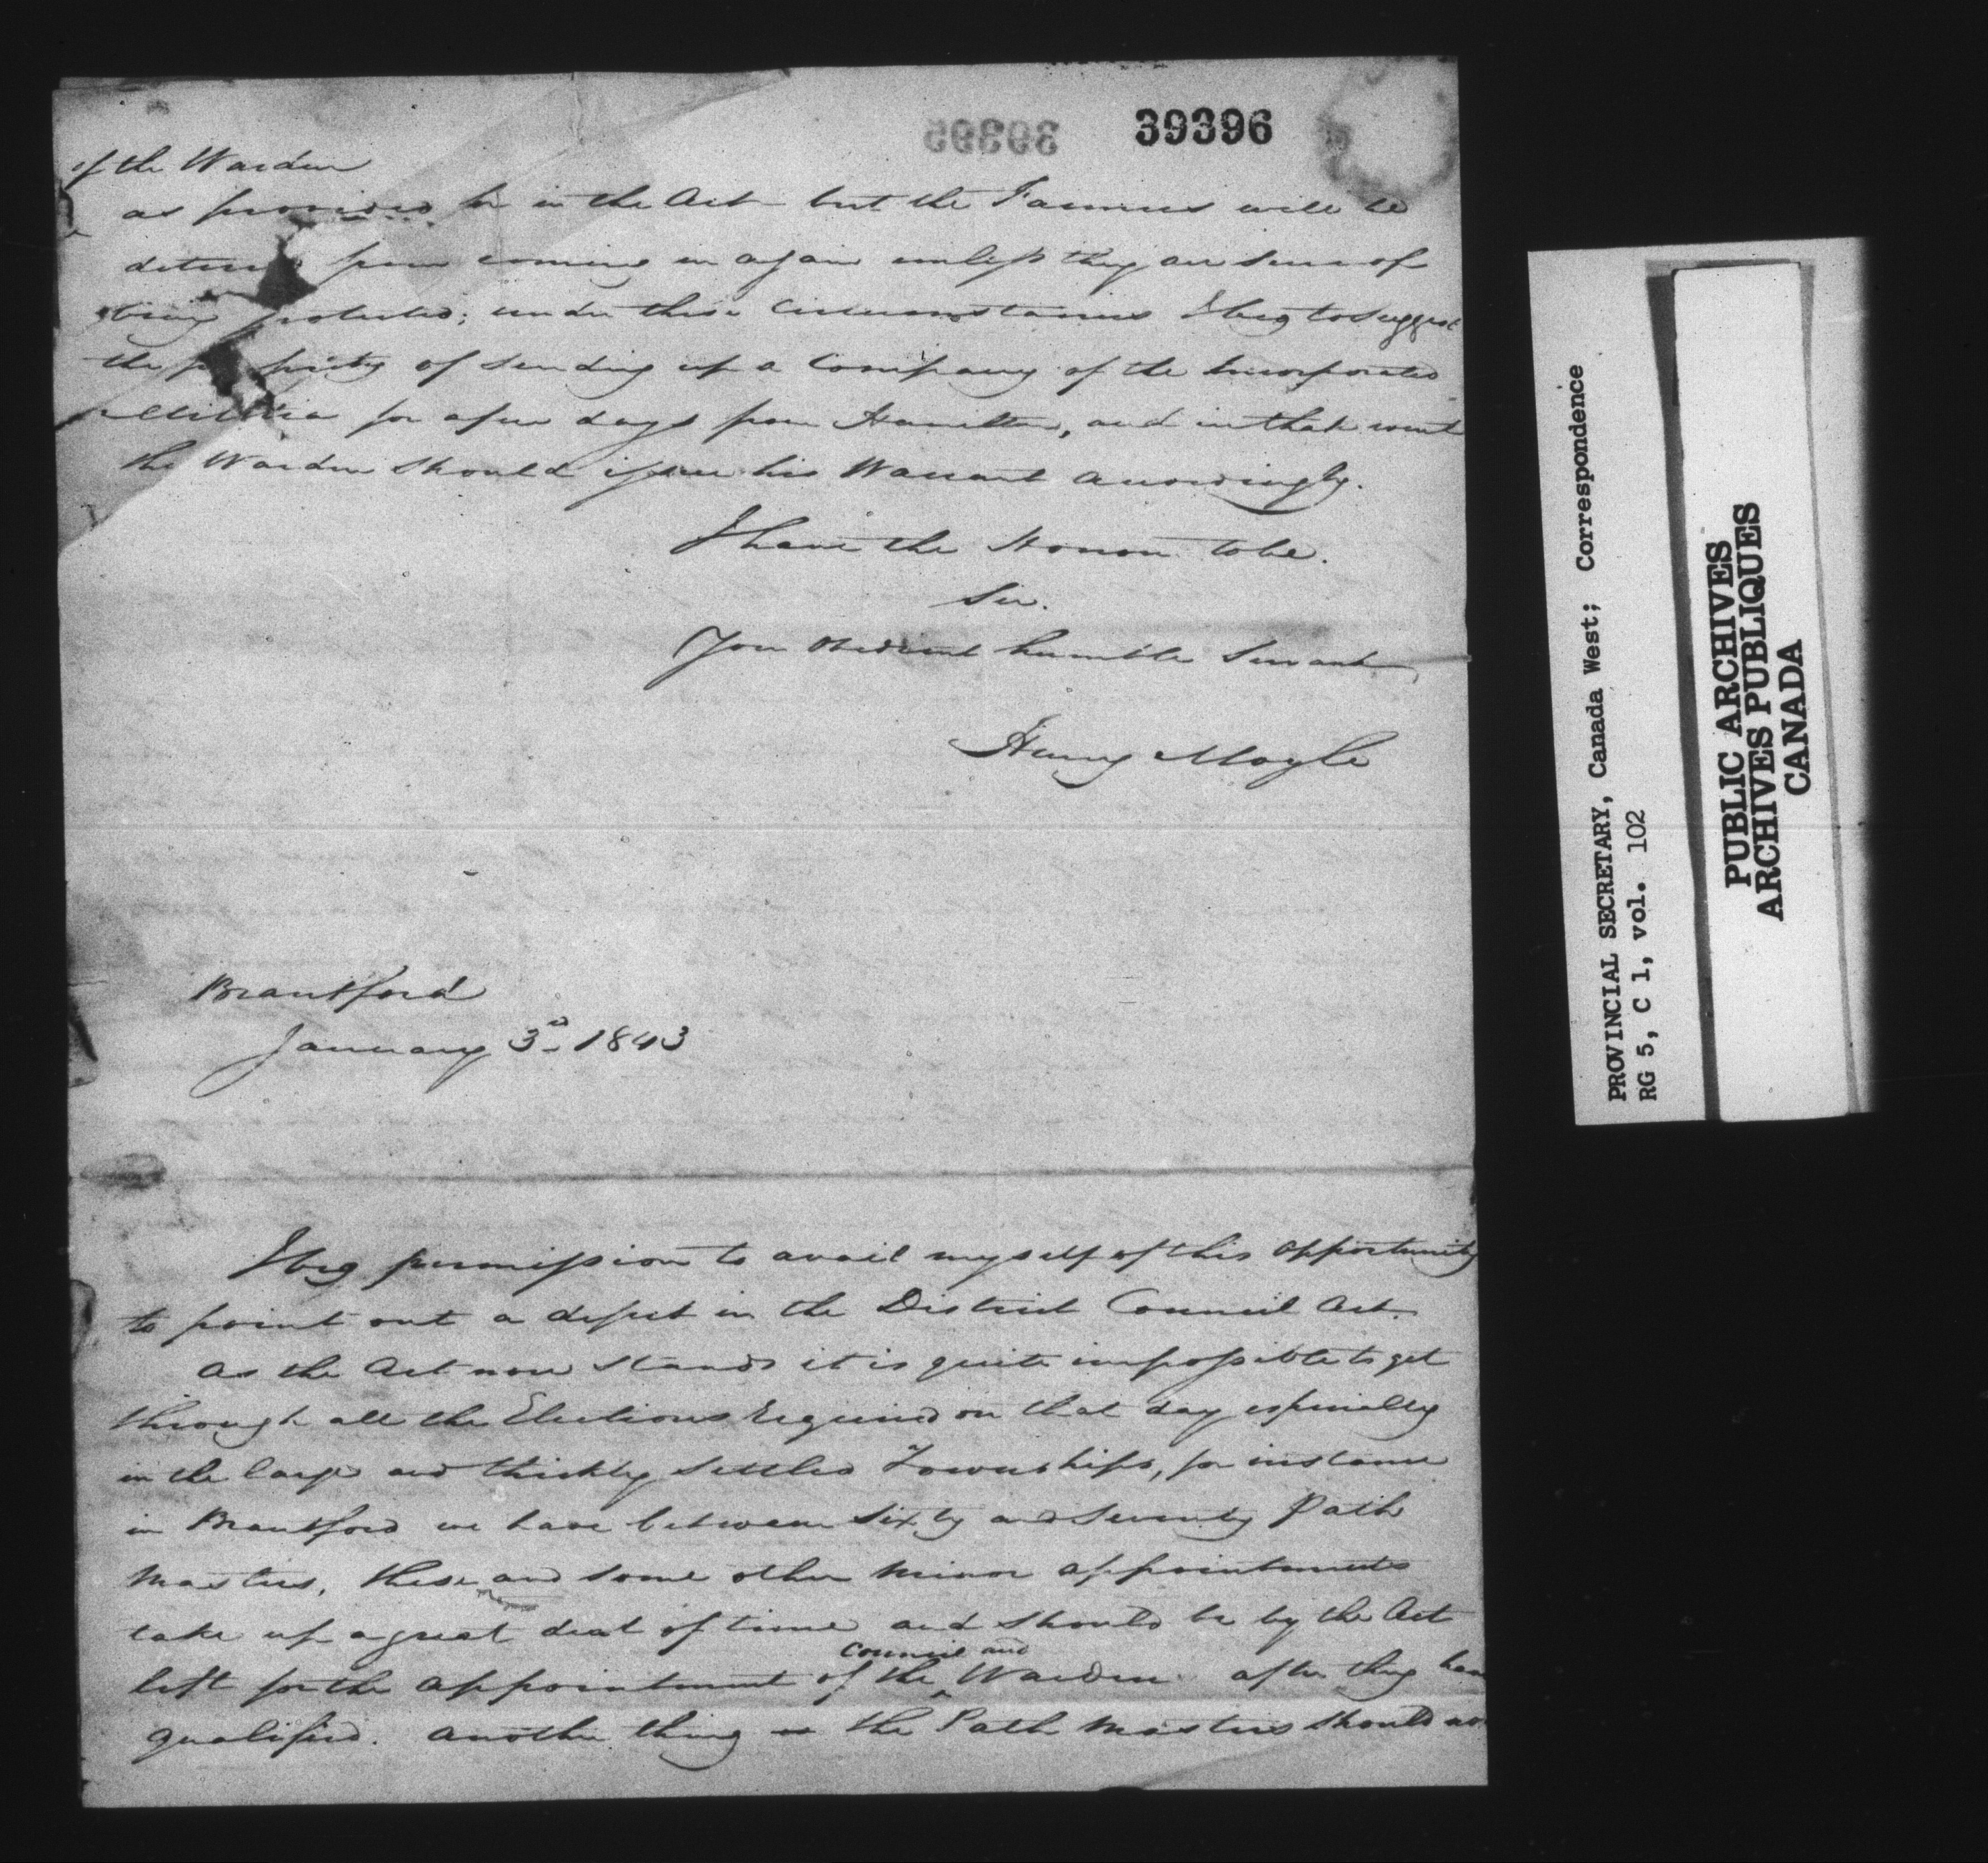 39396
of the Warden
as provided for in the Act but the Farmers will be
deterred from coming in again unless they are sure of
being protected; under these Circumstances I beg to suggest
the propriety of sending up a Company of the Incorporated
Militia for a few days from Hamilton, and in that event
the Warden should issue his Warrant accordingly.
I have the Honour to be.
Sir.
Your Obedient humble Servant
Henry Moyle
Brantford
January 3d 1843
I beg permission to avail myself of this opportunity
to point out a defect in the District Council Act.
As the Act now stands it is quite impossible to get
through all the Elections required on that day especially
in the large and thickly settled Townships, for instance
in Brantford we have between sixty and seventy Path
Masters, these and some other minor appointments
take up a great deal of time and should be by the Act
left for the appointment of the Council and Warden after they have
qualified. Another thing is the Path Masters should not
PROVINCIAL SECRETARY, Canada West; Correspondence
RG 5, C 1, vol. 102
PUBLIC ARCHIVES
ARCHIVES PUBLIQUES
CANADA